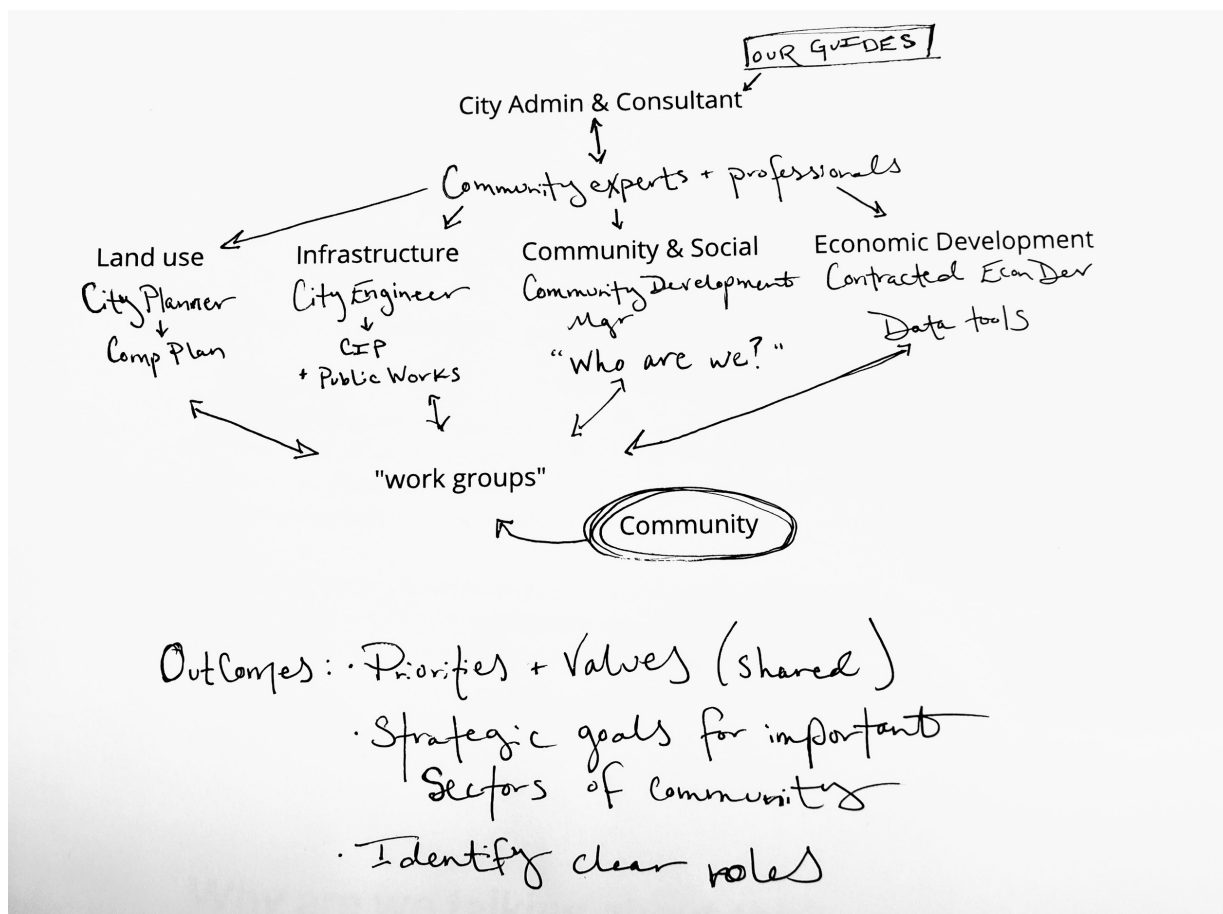 OUR GUIDES
City Admin & Consultant
Community experts + professionals
Land use
City Planner
Comp Plan
Infrastructure
City Engineer
CIP
+ Public Works
Community & Social
Community Development
Mgr
"Who are we?"
Economic Development
Contracted Econ Dev
Data tools
"work groups"
Community
Outcomes: · Priorities + Values (shared)
· Strategic goals for important
Sectors of Community
· Identify clear roles